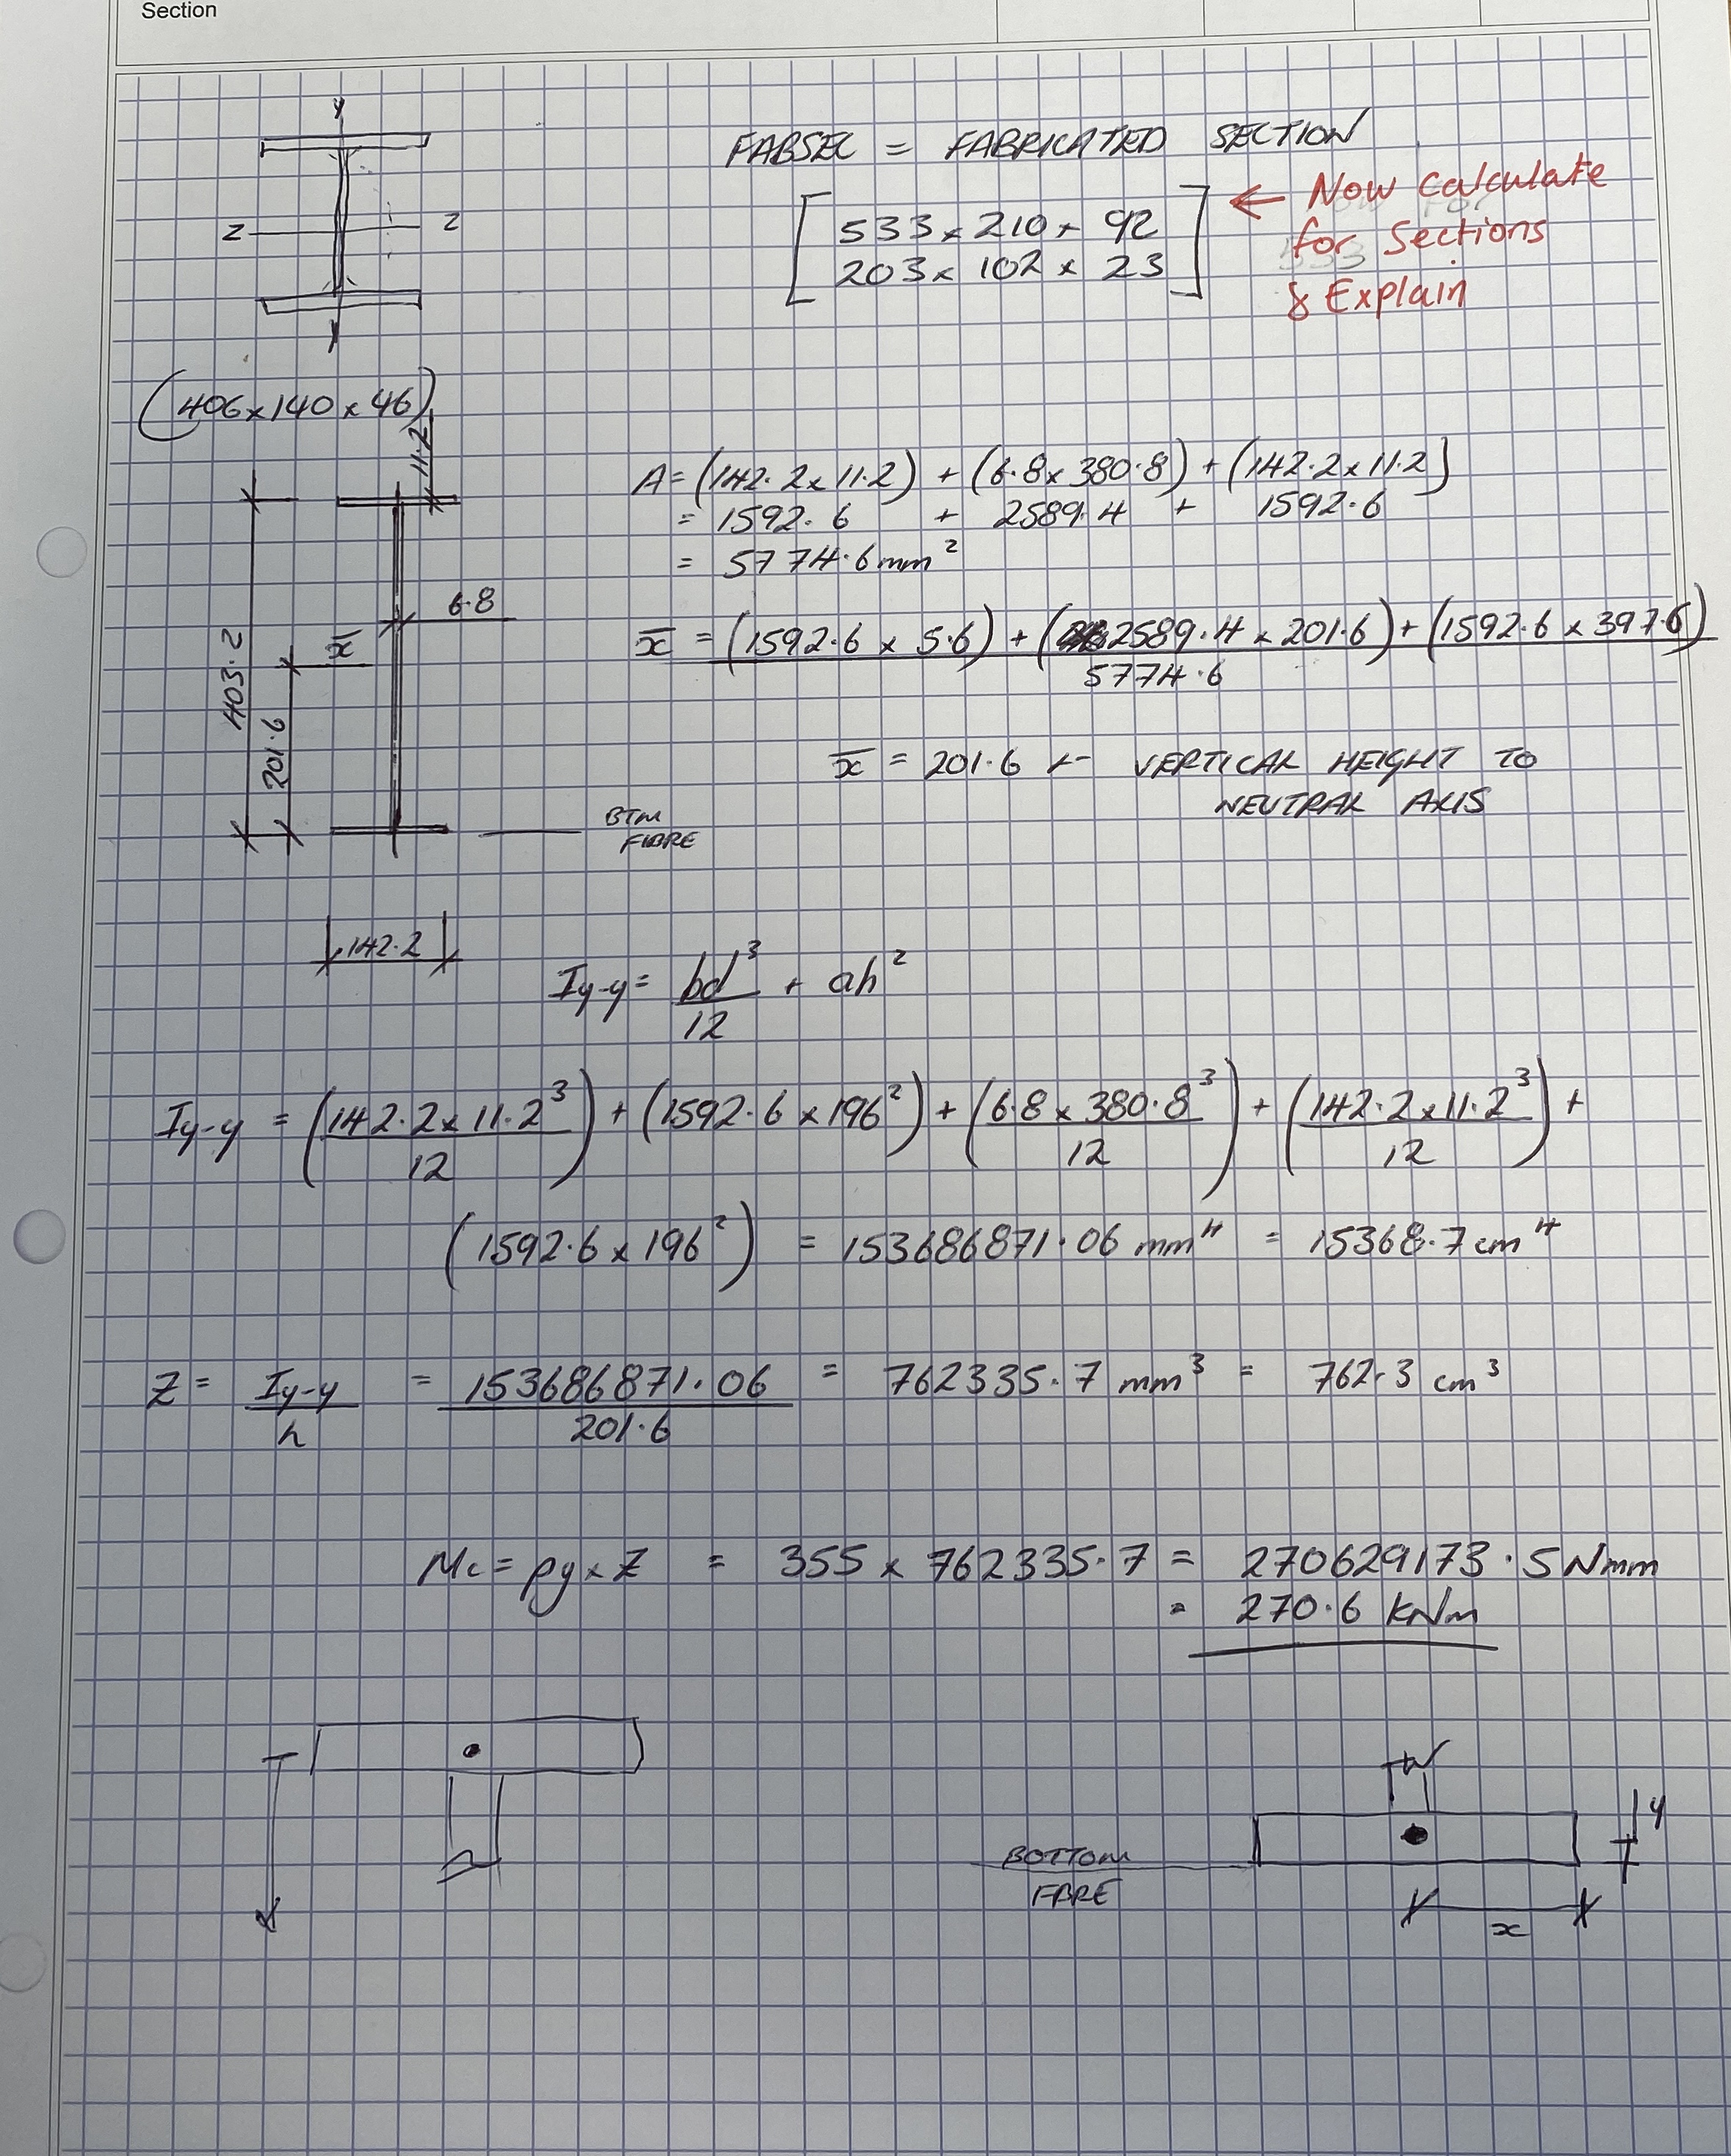 Section
Y
FABSEC = FABRICATED SECTION
[533 x 210 x 92
203 x 102 x 23]
← Now calculate
for Sections
& Explain
z z
Y
(406x140x46)
11.2
A = (142.2x11.2) + (6.8x380.8) + (142.2x11.2)
= 1592.6 + 2589.4 + 1592.6
= 5774.6mm²
6.8
x̄
403.2
201.6
x̄ = (1592.6 x 5.6) + (2589.4 x 201.6) + (1592.6 x 397.6)
5774.6
x̄ = 201.6 ← VERTICAL HEIGHT TO
NEUTRAL AXIS
BTM
FIBRE
142.2
Iy-y = bd³/12 + ah²
Iy-y = (142.2x11.2³/12) + (1592.6 x 196²) + (6.8 x 380.8³/12) + (142.2x11.2³/12) +
(1592.6 x 196²) = 153686871.06 mm⁴ = 15368.7cm⁴
Z = Iy-y/h = 153686871.06/201.6 = 762335.7 mm³ = 762.3 cm³
Mc = py x Z = 355 x 762335.7 = 270629173.5Nmm
= 270.6 kNm
y
BOTTOM
FBRE
x